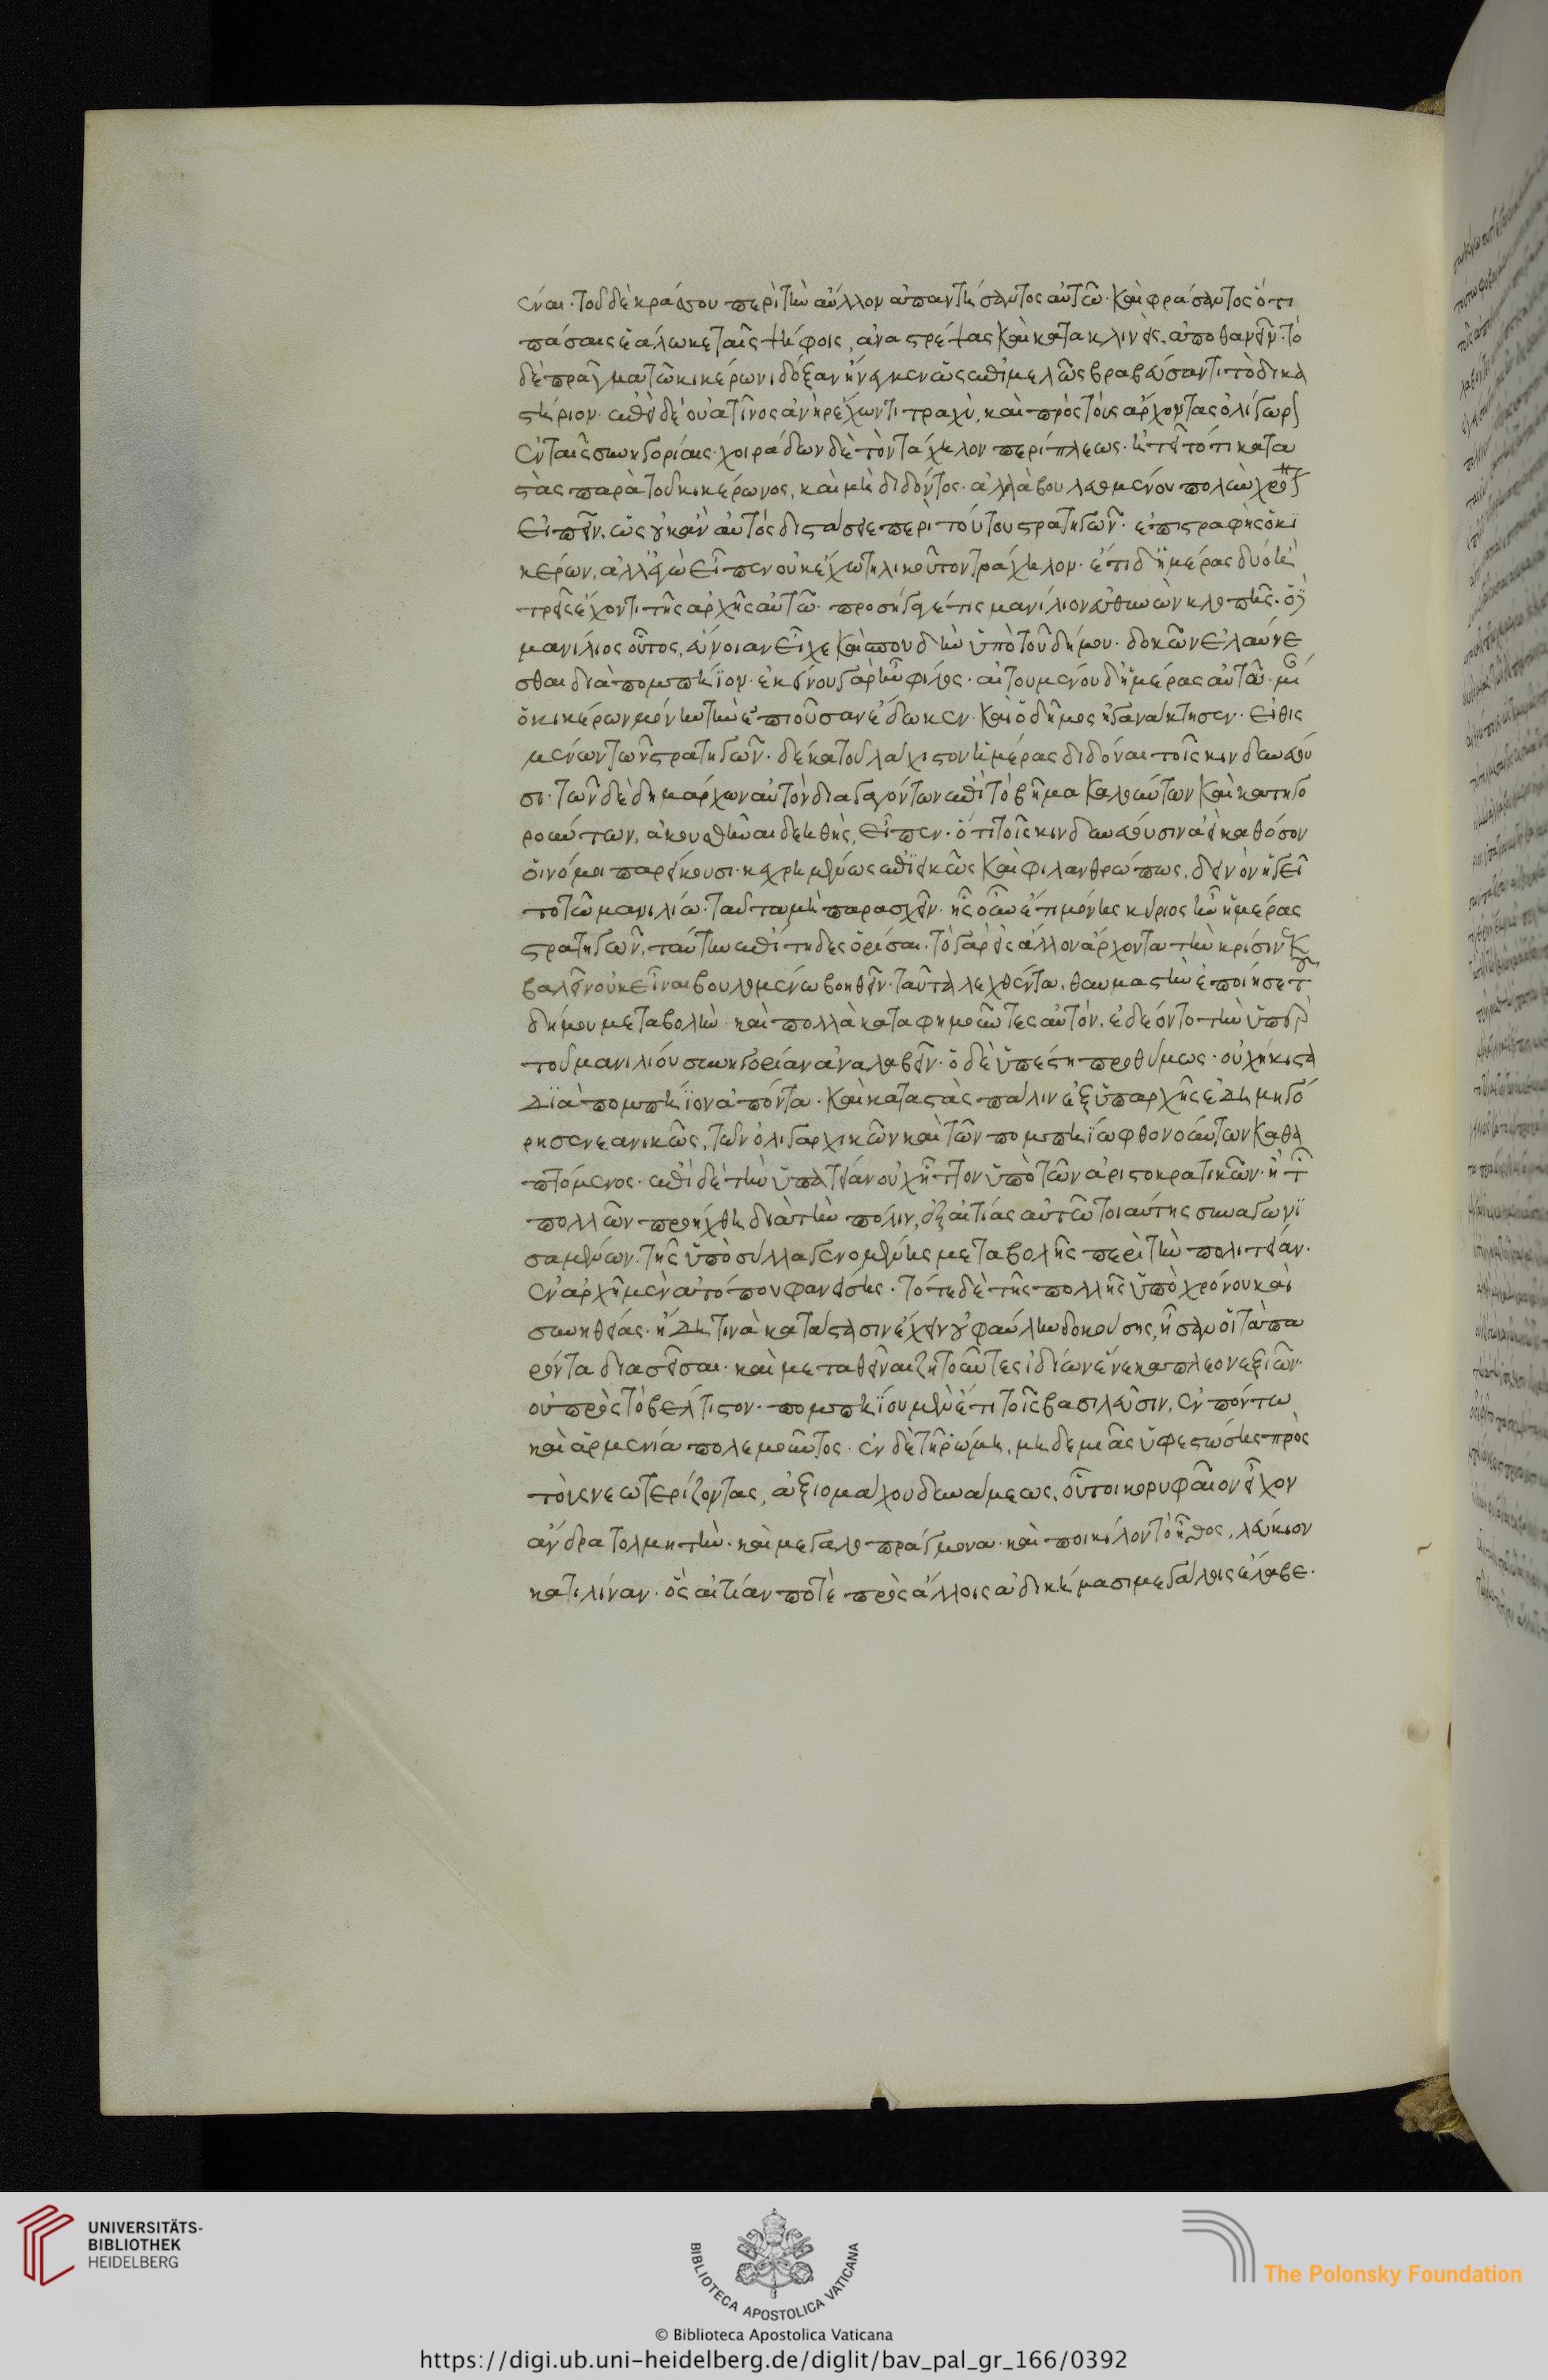 ϊέναι· τοῦ δὲ κράσσου περὶ τὴν αὔλιον ἀπαντήσαντος αὐτῶ· καὶ φράσαντος ὅτι
πάσαις ἑάλωκε ταῖς ψήφοις, ἀναστρέψας καὶ κατακλινεὶς, ἀποθανεῖν· τὸ
δὲ πρᾶγμα τῶ κικέρωνι δόξαν ἤνεγκεν ὡς ἐπιμελῶς βραβεύσαντι τὸ δικα
στήριον· ἐπεὶ δὲ οὐατῖνος ἀνὴρ ἔχων τι τραχὺ, καὶ πρὸς τοὺς ἄρχοντας ὀλίγωρον
ἐν ταῖς συνηγορίαις· χοιράδων δὲ τὸν τράχηλον περίπλεως· ἠτεῖτό τι κατα
στὰς παρὰ τοῦ κικέρωνος, καὶ μὴ διδόντος· ἀλλὰ βουλευομένου πολὺν χρόνον
εἶπεν, ὡς οὐκ ἂν αὐτὸς διστάσειε περὶ τούτου στρατηγῶν· ἐπιστραφεὶς ὁ κι
κέρων, ἀλλ' ἐγὼ εἶπεν οὐκ ἔχω τηλικοῦτον τράχηλον· ἔτι δ' ἡμέρας δύο ἢ
τρεῖς ἔχοντι τῆς ἀρχῆς αὐτῶ· προσήγαγέ τις μανίλιον εὐθύνων κλοπῆς· ὁ δὲ
μανίλιος οὗτος, εὔνοιαν εἶχε καὶ σπουδὴν ὑπὸ τοῦ δήμου· δοκῶν ἐλαύνε
σθαι διὰ πομπήϊον· ἐκείνου γὰρ ἦν φίλος· αἰτουμένου δ' ἡμέρας αὐτοῦ· μίαν
ὁ κικέρων μόνην τὴν ἐπιοῦσαν ἔδωκεν· καὶ ὁ δῆμος ἠγανάκτησεν· εἰθισ
μένων τῶν στρατηγῶν· δέκα τοὐλάχιστον ἡμέρας διδόναι τοῖς κινδυνεύου
σι· τῶν δὲ δημάρχων αὐτὸν διαγαγόντων ἐπὶ τὸ βῆμα καλούντων καὶ κατηγο
ρούντων, ἀκουσθῆναι δεηθεὶς, εἶπεν· ὅτι τοῖς κινδυνεύουσιν ἀεὶ καθόσον
οἱ νόμοι παρείκουσι· κεχρημένος ἐπιεικῶς καὶ φιλανθρώπως, δεινὸν ἡγεῖ
το τῶ μανιλίω· ταῦτα μὴ παρασχεῖν· ἧς οὖν ἔτι μόνης κύριος ἦν ἡμέρας
στρατηγῶν, ταύτην ἐπίτηδες ὁρίσαι· τὸ γὰρ εἰς ἄλλον ἄρχοντα τὴν κρίσιν ἐκ
βαλεῖν οὐκ εἶναι βουλομένω βοηθεῖν· ταῦτα λεχθέντα, θαυμαστὴν ἐποίησε τοῦ
δήμου μεταβολὴν· καὶ πολλὰ κατευφημοῦντες αὐτὸν, ἐδέοντο τὴν ὑπὲρ
τοῦ μανιλίου συνηγορίαν ἀναλαβεῖν· ὁ δὲ ὑπέστη προθύμως· οὐχ ἥκιστα
διὰ πομπήϊον ἀπόντα· καὶ καταστὰς πάλιν ἐξ ὑπαρχῆς ἐδημηγό
ρησε νεανικῶς, τῶν ὀλιγαρχικῶν καὶ τῶν πομπηΐω φθονούντων καθα
πτόμενος· ἐπὶ δὲ τὴν ὑπατείαν οὐχ ἧττον ὑπὸ τῶν ἀριστοκρατικῶν· ἢ τῶν
πολλῶν προήχθη διὰ τὴν πόλιν, ἐξ αἰτίας αὐτῶ τοιαύτης συναγωνι
σαμένων· τῆς ὑπὸ σύλλα γενομένης μεταβολῆς περὶ τὴν πολιτείαν·
ἐν ἀρχῆ μὲν ἀτόπου φανείσης· τότε δὲ τῆς πολλῆς ὑπὸ χρόνου καὶ
συνηθείας· ἤδη τινὰ κατάστασιν ἔχειν οὐ φαύλην δοκούσης, ἦσαν οἱ τὰ πα
ρόντα διασεῖσαι· καὶ μεταθεῖναι ζητοῦντες ἰδίων ἕνεκα πλεονεξιῶν·
οὐ πρὸς τὸ βέλτιστον· πομπηΐου μὲν ἔτι τοῖς βασιλεῦσιν, ἐν πόντω
καὶ ἀρμενία πολεμοῦντος· ἐν δὲ τῆ ῥώμη, μηδεμιᾶς ὑφεστώσης πρὸς
τοὺς νεωτερίζοντας, ἀξιομάχου δυνάμεως, οὗτοι κορυφαῖον εἶχον
ἄνδρα τολμητὴν· καὶ μεγαλοπράγμονα· καὶ ποικίλον τὸ ἦθος, λεύκιον
κατιλίναν· ὃς αἰτίαν ποτὲ πρὸς ἄλλοις ἀδικήμασι μεγάλοις ἔλαβε·
UNIVERSITÄTS-
BIBLIOTHEK
HEIDELBERG
BIBLIOTECA APOSTOLICA VATICANA
The Polonsky Foundation
© Biblioteca Apostolica Vaticana
https://digi.ub.uni-heidelberg.de/diglit/bav_pal_gr_166/0392